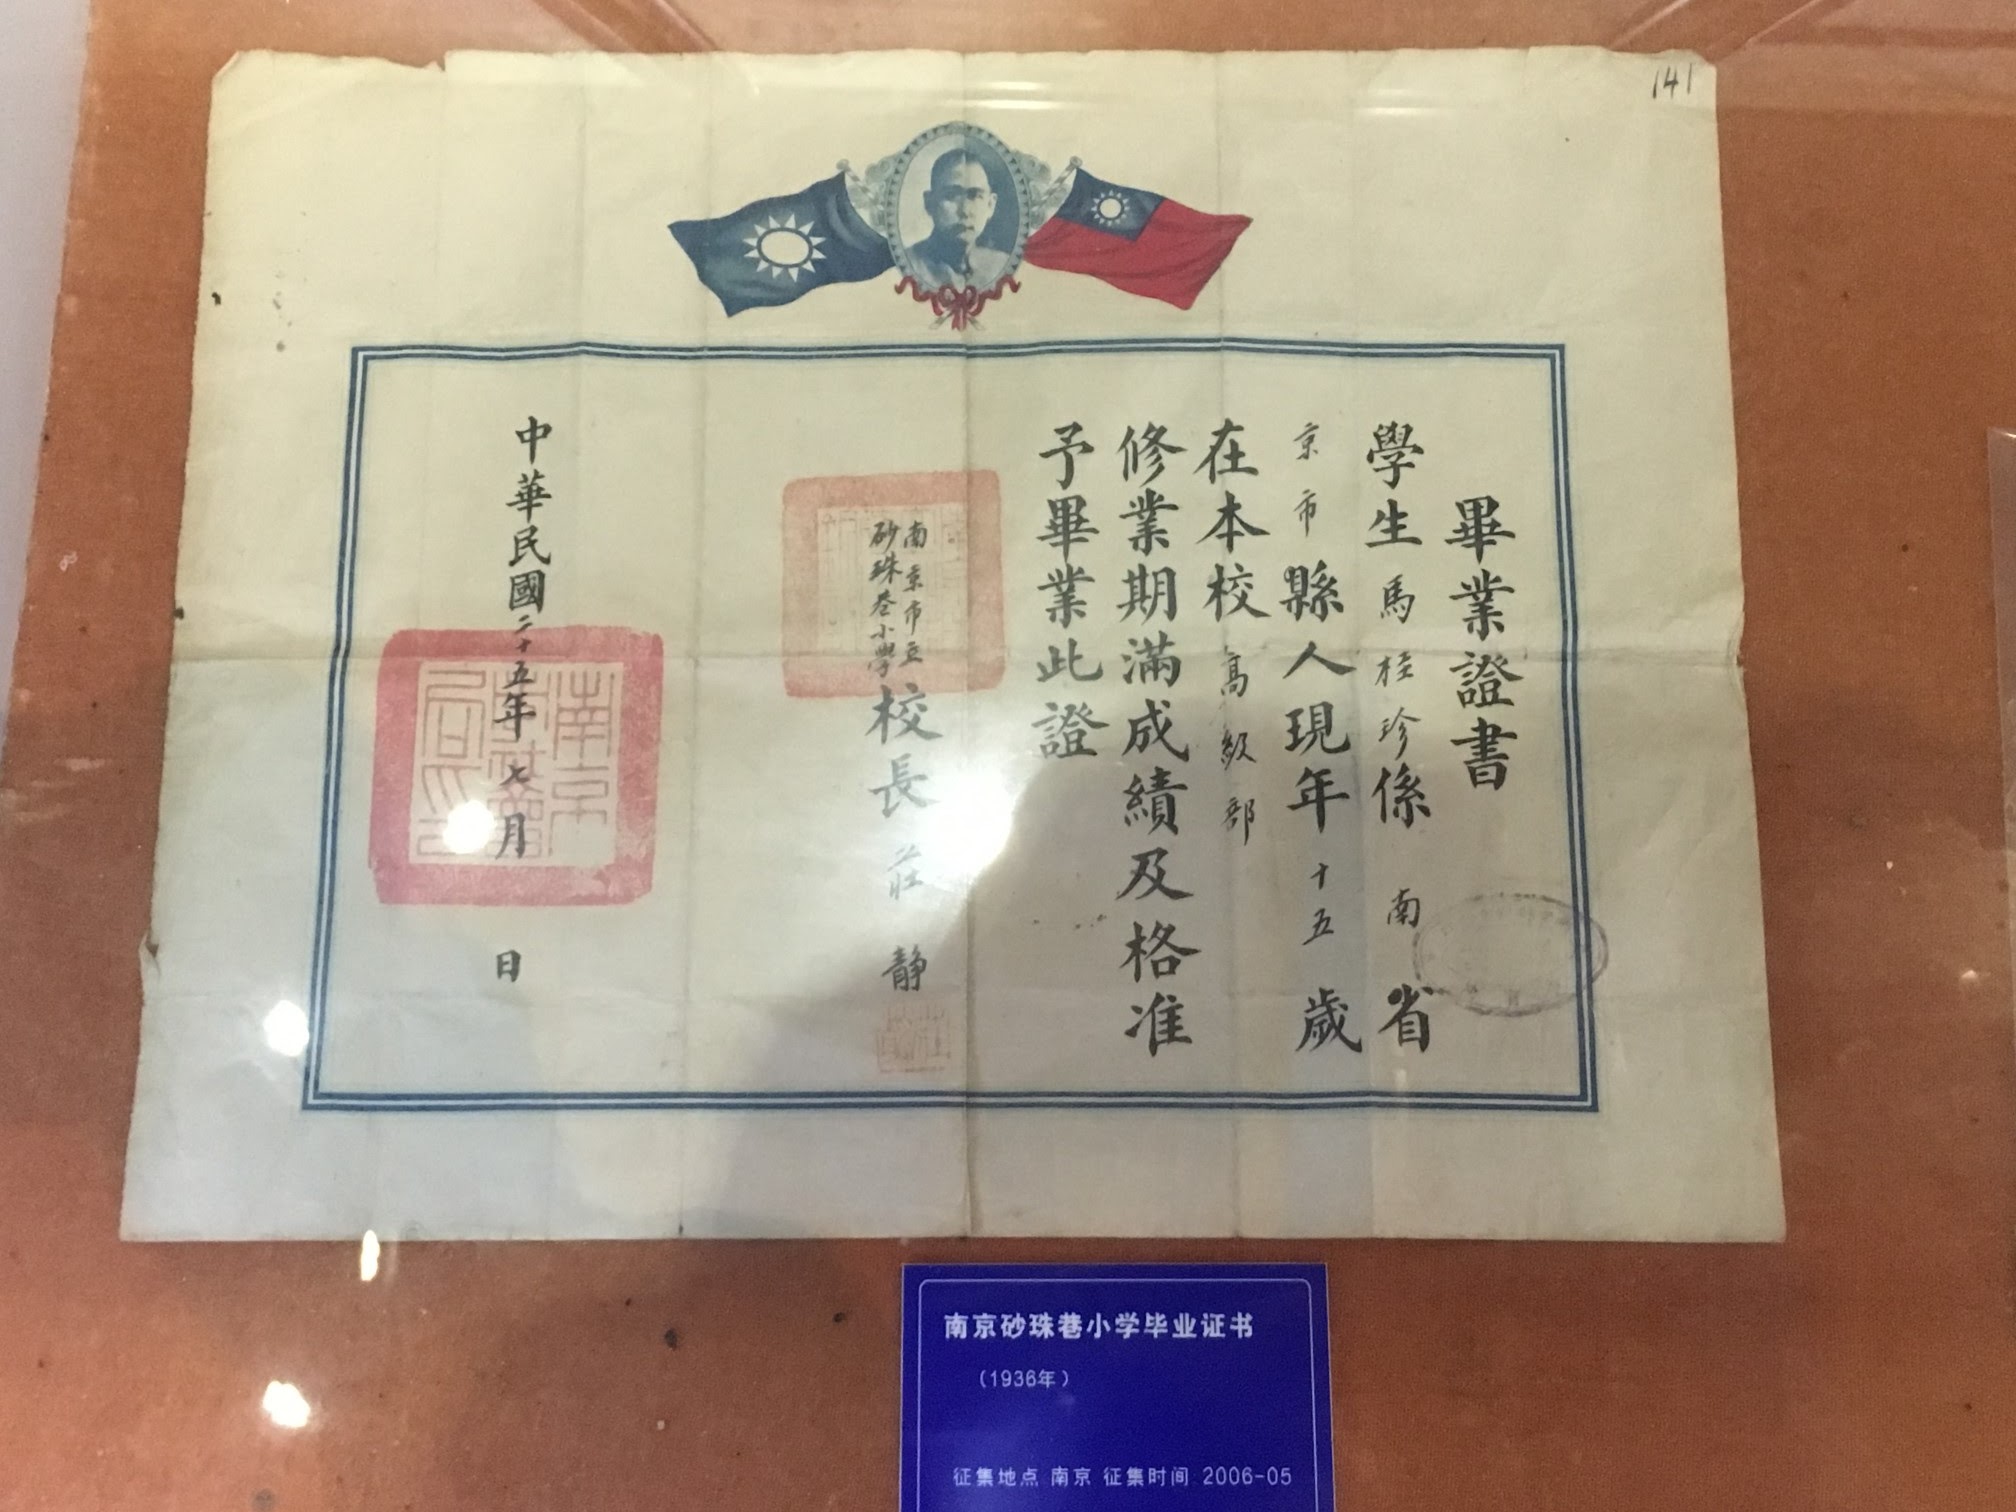 141
畢業證書
學生馬桂珍係南省
京市縣人現年十五歲
在本校高級部
修業期滿成績及格准
予畢業此證
南京市立
砂珠巷小學
校長莊靜
中華民國二十五年七月日
南京砂珠巷小学毕业证书
（1936年）
征集地点 南京 征集时间 2006-05